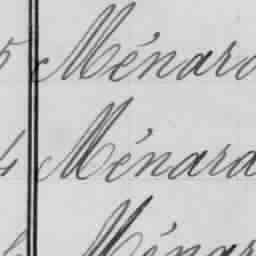 5 Ménard
4 Ménard
Ménar